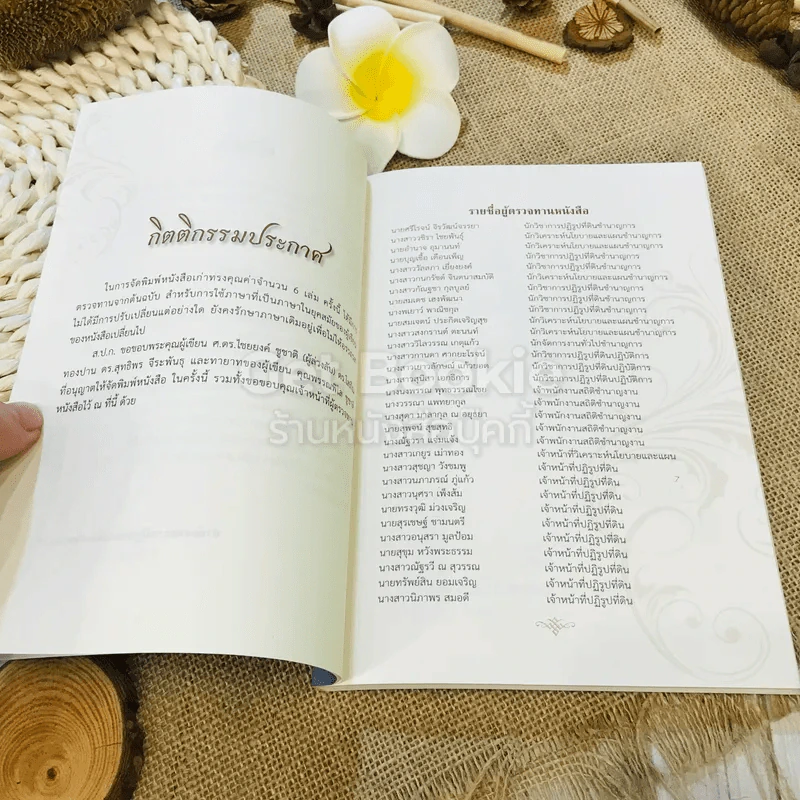 กิตติกรรมประกาศ
ในการจัดพิมพ์หนังสือเก่าทรงคุณค่าจำนวน 6 เล่ม ครั้งนี้
ตรวจทานจากต้นฉบับ สำหรับการใช้ภาษาที่เป็นภาษาในยุคสมัย
ไม่ได้มีการปรับเปลี่ยนแต่อย่างใด ยังคงรักษาภาษาเดิมอยู่เพื่อไม่ให้
ของหนังสือเปลี่ยนไป
ส.ป.ก. ขอขอบพระคุณผู้เขียน ศ.ดร.ไชยยงค์ ชูชาติ (ผู้ล่วงลับ)
ทองปาน ดร.สุทธิพร จีระพันธุ และทายาทของผู้เขียน
ที่อนุญาตให้จัดพิมพ์หนังสือ ในครั้งนี้ รวมทั้งขอขอบคุณเจ้าหน้าที่
หนังสือไว้ ณ ที่นี้ ด้วย
รายชื่อผู้ตรวจทานหนังสือ
นายศรีโรจน์ จิรวัฒน์จรรยา นักวิชาการปฏิรูปที่ดินชำนาญการ
นางสาววชิรา ไชยพันธุ์ นักวิเคราะห์นโยบายและแผนชำนาญการ
นายอำนาจ อุมานนท์ นักวิเคราะห์นโยบายและแผนชำนาญการ
นายบุญเชื้อ เดือนเพ็ญ นักวิชาการปฏิรูปที่ดินชำนาญการ
นางสาววัลสภา เยี่ยงยงค์ นักวิชาการปฏิรูปที่ดินชำนาญการ
นางสาวกนกรัชต์ จินดนาสมบัติ นักวิเคราะห์นโยบายและแผนชำนาญการ
นางสาวกัณฐชา กุลบูลย์ นักวิชาการปฏิรูปที่ดินชำนาญการ
นายสมเดช เฮงพัฒนา นักวิชาการปฏิรูปที่ดินชำนาญการ
นางพเยาว์ พาณิชกุล นักวิชาการปฏิรูปที่ดินชำนาญการ
นายสมเจตน์ ประกิตเจริญสุข นักวิชาการปฏิรูปที่ดินชำนาญการ
นางสาวสงกรานต์ ตะนนท์ นักวิเคราะห์นโยบายและแผนชำนาญการ
นางสาววิไลวรรณ เกตุแก้ว นักจัดการงานทั่วไปชำนาญการ
นางสาวกานดา ศากยะโรจน์ นักวิชาการปฏิรูปที่ดินปฏิบัติการ
นักวิชาการปฏิรูปที่ดินปฏิบัติการ
นักวิชาการปฏิรูปที่ดินปฏิบัติการ
เจ้าพนักงานสถิติชำนาญงาน
นางวรรณา แพทยากูล เจ้าพนักงานสถิติชำนาญงาน
นางสุดา มาลากุล ณ อยุธยา เจ้าพนักงานสถิติชำนาญงาน
นายสุพจน์ สุขสุทธิ์ เจ้าพนักงานสถิติชำนาญงาน
นางณัฐวรา แจ่มแจ้ง เจ้าพนักงานสถิติชำนาญงาน
นางสาวเกยูร เม่าทอง เจ้าหน้าที่วิเคราะห์นโยบายและแผน
นางสาวสุชญา วังชมพู เจ้าหน้าที่ปฏิรูปที่ดิน
นางสาวนภาภรณ์ ภู่แก้ว เจ้าหน้าที่ปฏิรูปที่ดิน
นางสาวนุศรา เพ็งส้ม เจ้าหน้าที่ปฏิรูปที่ดิน
นายทรงวุฒิ ม่วงเจริญ เจ้าหน้าที่ปฏิรูปที่ดิน
นายสุรเชษฐ์ ชามนตรี เจ้าหน้าที่ปฏิรูปที่ดิน
นางสาวอนุสรา มูลป้อม เจ้าหน้าที่ปฏิรูปที่ดิน
นายสุขุม หวังพระธรรม เจ้าหน้าที่ปฏิรูปที่ดิน
นางสาวณัฐรวี ณ สุวรรณ เจ้าหน้าที่ปฏิรูปที่ดิน
นายทรัพย์สิน ยอมเจริญ เจ้าหน้าที่ปฏิรูปที่ดิน
นางสาวนิภาพร สมอดี เจ้าหน้าที่ปฏิรูปที่ดิน
7